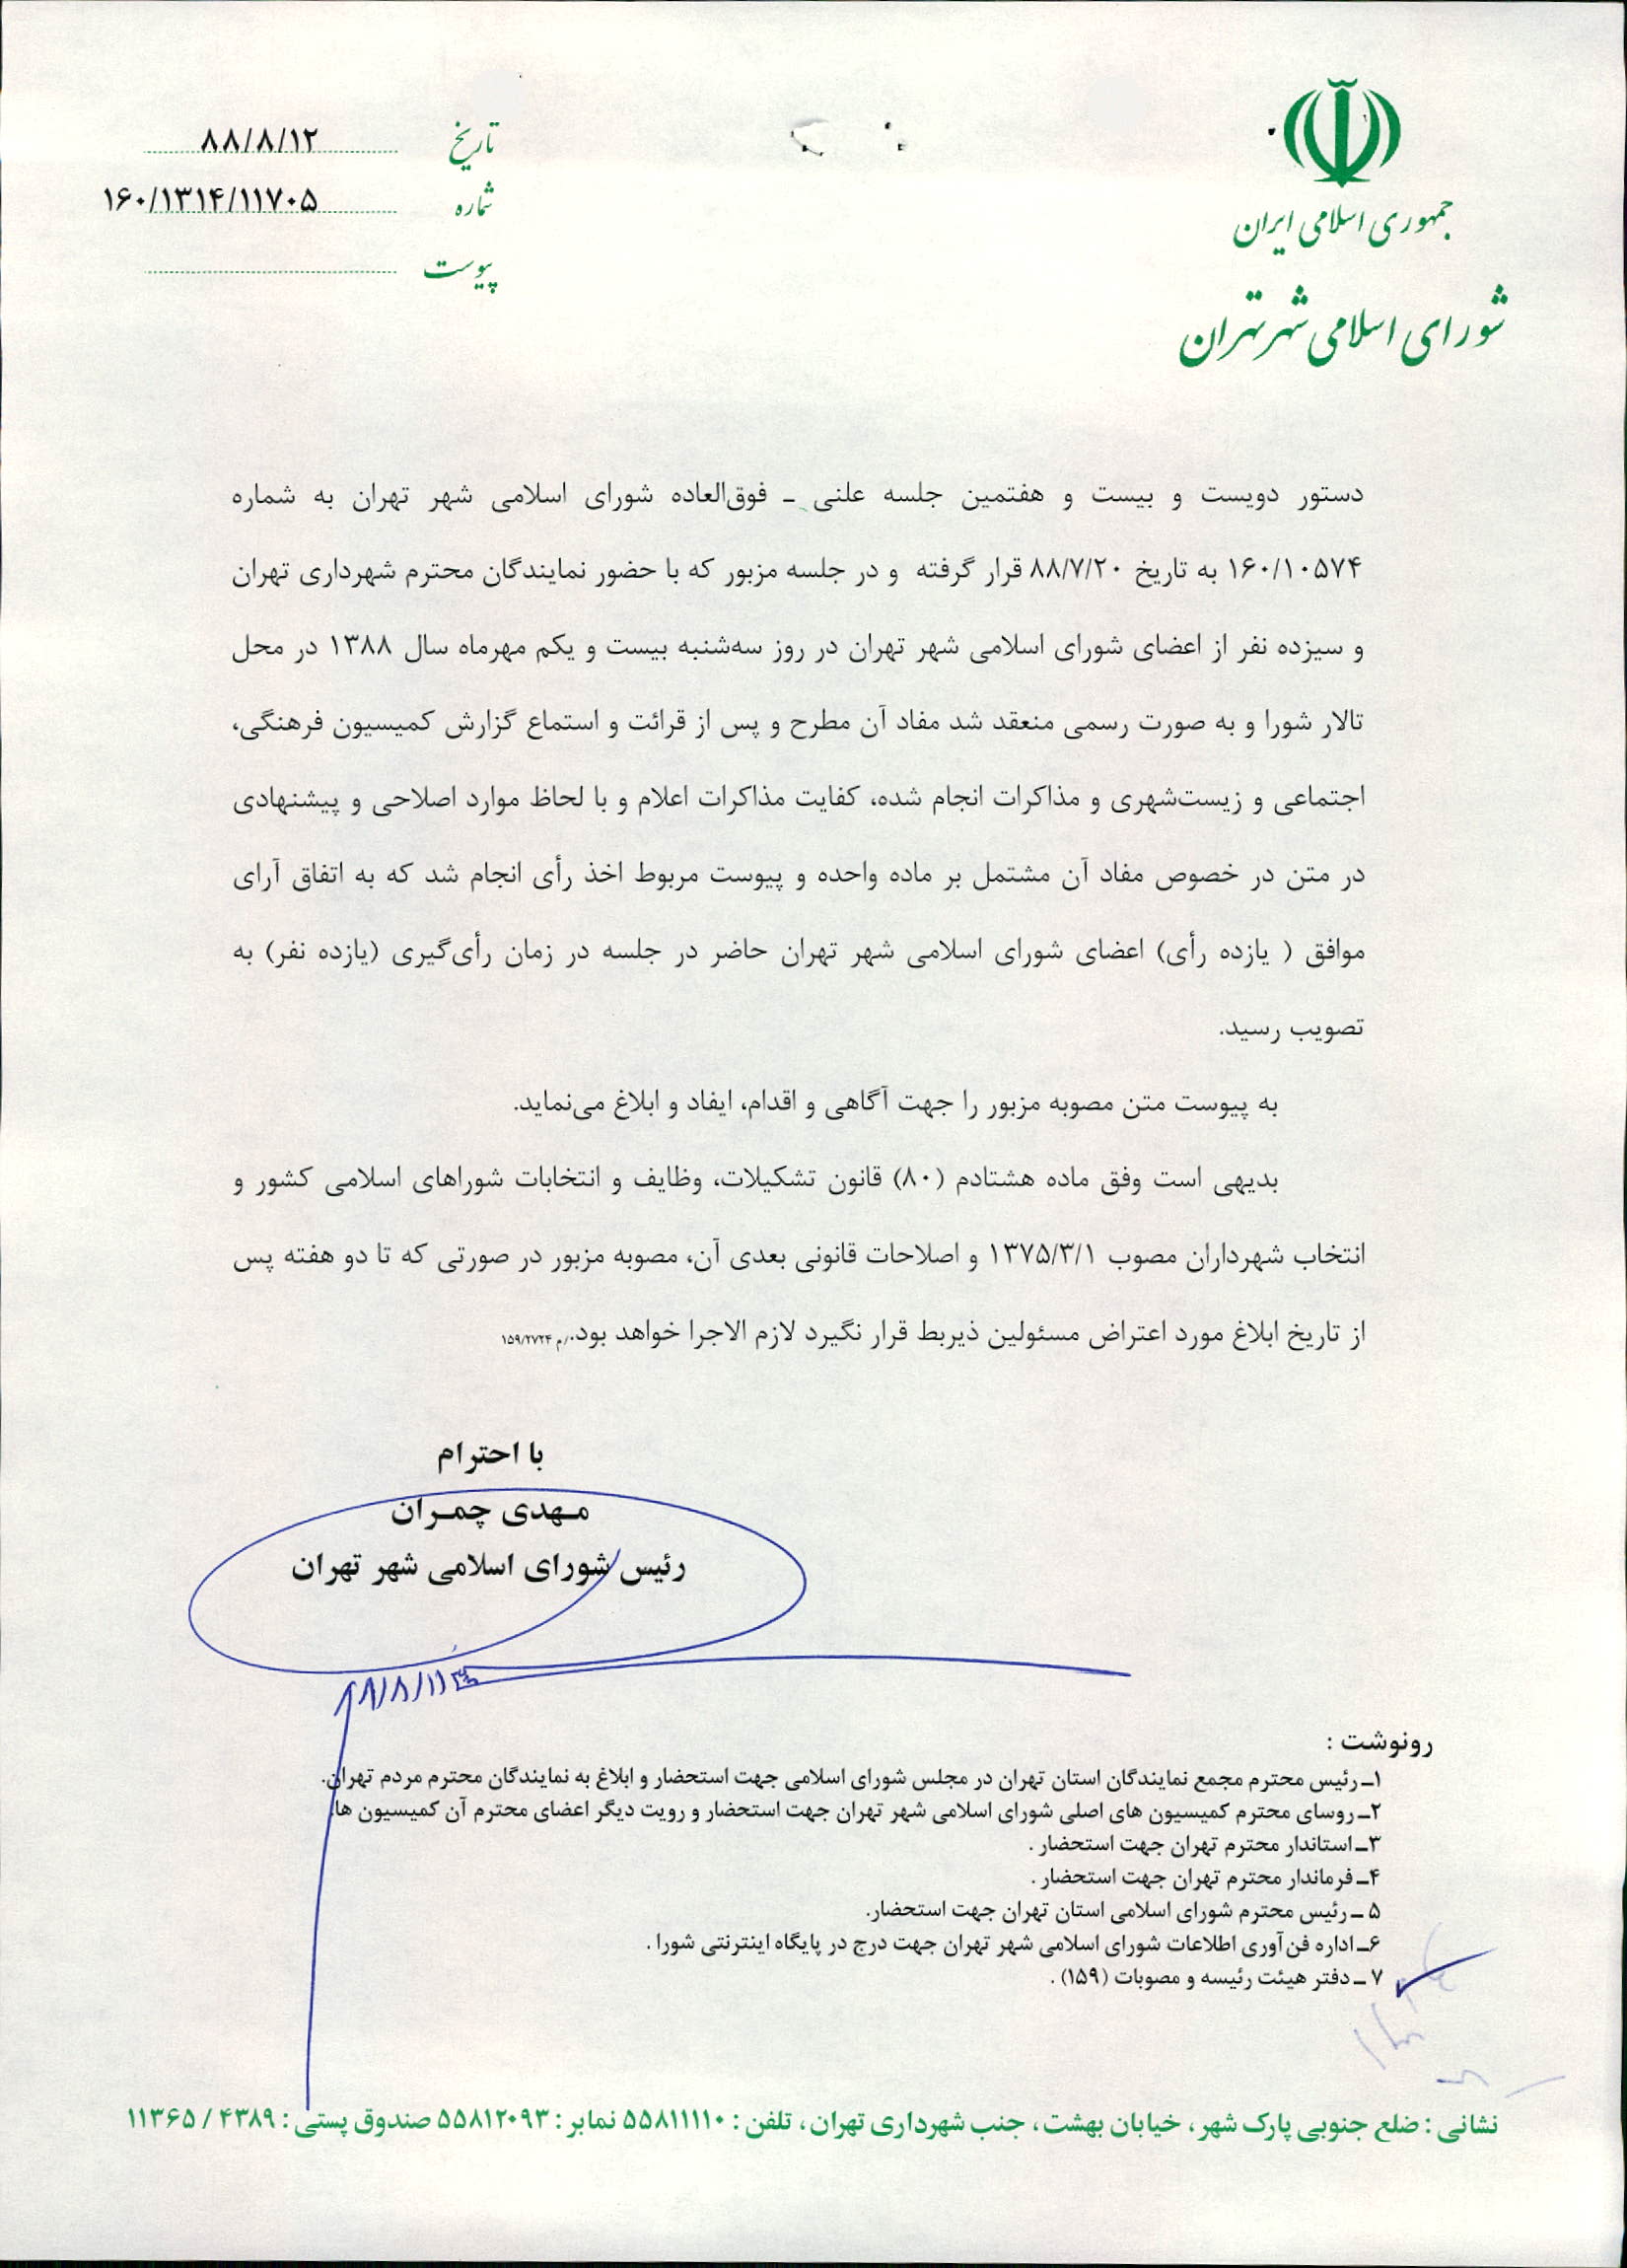 جمهوری اسلامی ایران
شورای اسلامی شهر تهران
تاریخ ۸۸/۸/۱۲
شماره ۱۶۰/۱۳۱۴/۱۱۷۰۵
پیوست
دستور دویست و بیست و هفتمین جلسه علنی ـ فوق‌العاده شورای اسلامی شهر تهران به شماره
۱۶۰/۱۰۵۷۴ به تاریخ ۸۸/۷/۲۰ قرار گرفته و در جلسه مزبور که با حضور نمایندگان محترم شهرداری تهران
و سیزده نفر از اعضای شورای اسلامی شهر تهران در روز سه‌شنبه بیست و یکم مهرماه سال ۱۳۸۸ در محل
تالار شورا و به صورت رسمی منعقد شد مفاد آن مطرح و پس از قرائت و استماع گزارش کمیسیون فرهنگی،
اجتماعی و زیست‌شهری و مذاکرات انجام شده، کفایت مذاکرات اعلام و با لحاظ موارد اصلاحی و پیشنهادی
در متن در خصوص مفاد آن مشتمل بر ماده واحده و پیوست مربوط اخذ رأی انجام شد که به اتفاق آرای
موافق ( یازده رأی) اعضای شورای اسلامی شهر تهران حاضر در جلسه در زمان رأی‌گیری (یازده نفر) به
تصویب رسید.
به پیوست متن مصوبه مزبور را جهت آگاهی و اقدام، ایفاد و ابلاغ می‌نماید.
بدیهی است وفق ماده هشتادم (۸۰) قانون تشکیلات، وظایف و انتخابات شوراهای اسلامی کشور و
انتخاب شهرداران مصوب ۱۳۷۵/۳/۱ و اصلاحات قانونی بعدی آن، مصوبه مزبور در صورتی که تا دو هفته پس
از تاریخ ابلاغ مورد اعتراض مسئولین ذیربط قرار نگیرد لازم الاجرا خواهد بود./م ۱۵۹/۲۷۲۴
با احترام
مـهدی چمـران
رئیس شورای اسلامی شهر تهران
رونوشت :
۱ـ رئیس محترم مجمع نمایندگان استان تهران در مجلس شورای اسلامی جهت استحضار و ابلاغ به نمایندگان محترم مردم تهران.
۲ـ روسای محترم کمیسیون های اصلی شورای اسلامی شهر تهران جهت استحضار و رویت دیگر اعضای محترم آن کمیسیون ها.
۳ـ استاندار محترم تهران جهت استحضار .
۴ـ فرماندار محترم تهران جهت استحضار .
۵ ـ رئیس محترم شورای اسلامی استان تهران جهت استحضار.
۶ـ اداره فن‌آوری اطلاعات شورای اسلامی شهر تهران جهت درج در پایگاه اینترنتی شورا .
۷ ـ دفتر هیئت رئیسه و مصوبات (۱۵۹) .
نشانی : ضلع جنوبی پارک شهر ، خیابان بهشت ، جنب شهرداری تهران ، تلفن : ۵۵۸۱۱۱۱۰ نمابر : ۵۵۸۱۲۰۹۳ صندوق پستی : ۴۳۸۹ / ۱۱۳۶۵